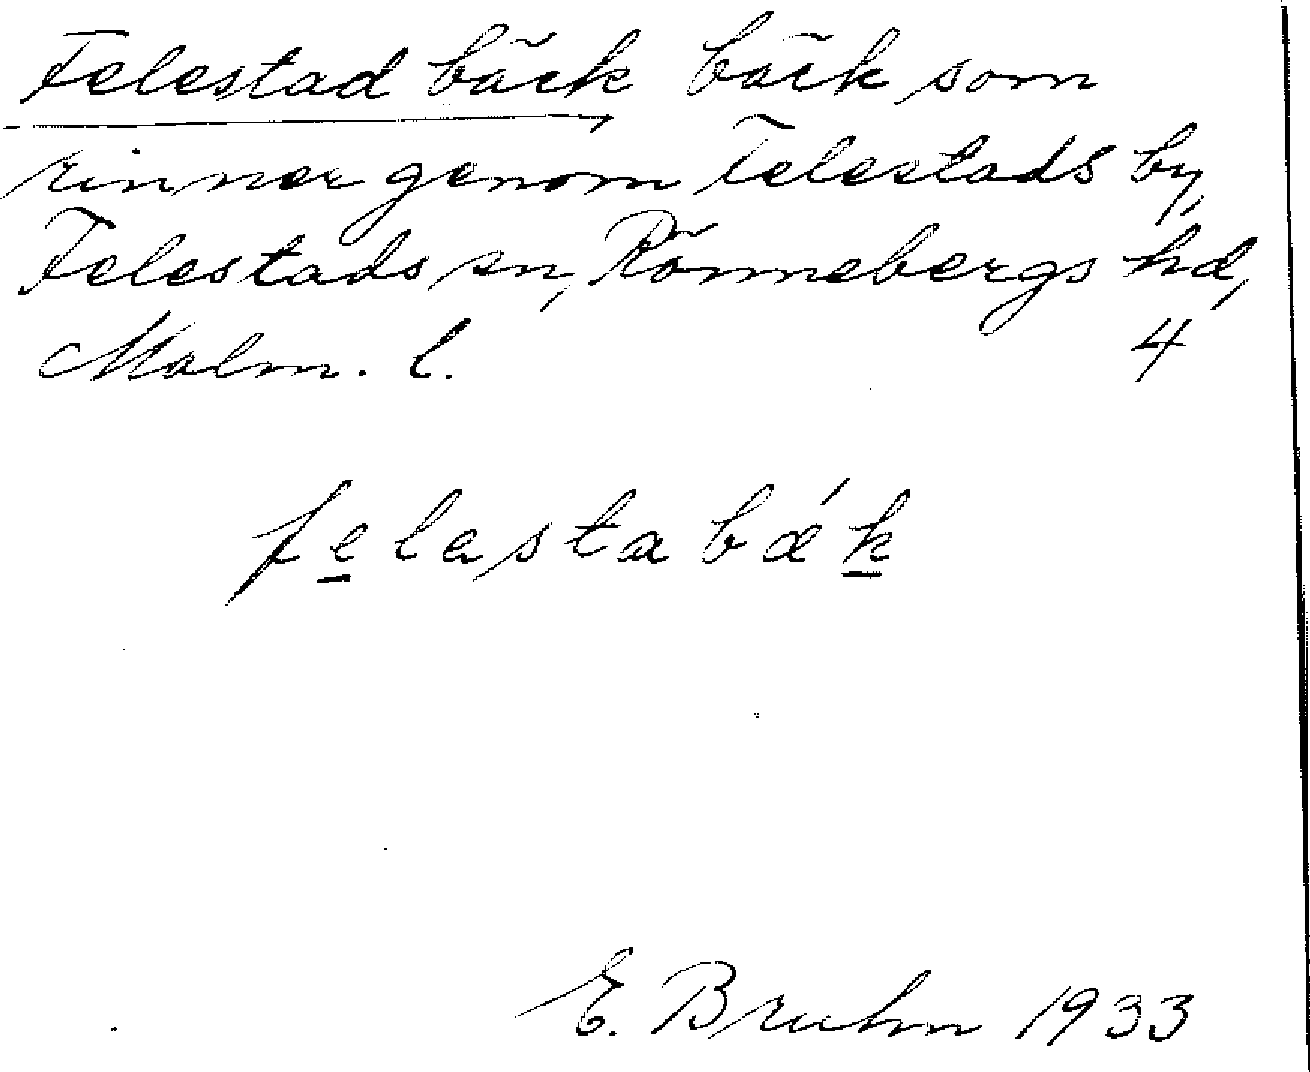 Felestad bäck bäck som
rinner genom Felestads by,
Felestads sn, Rönnebergs hd,
Malm. l. 4
felastabǽk
E. Bruhn 1933